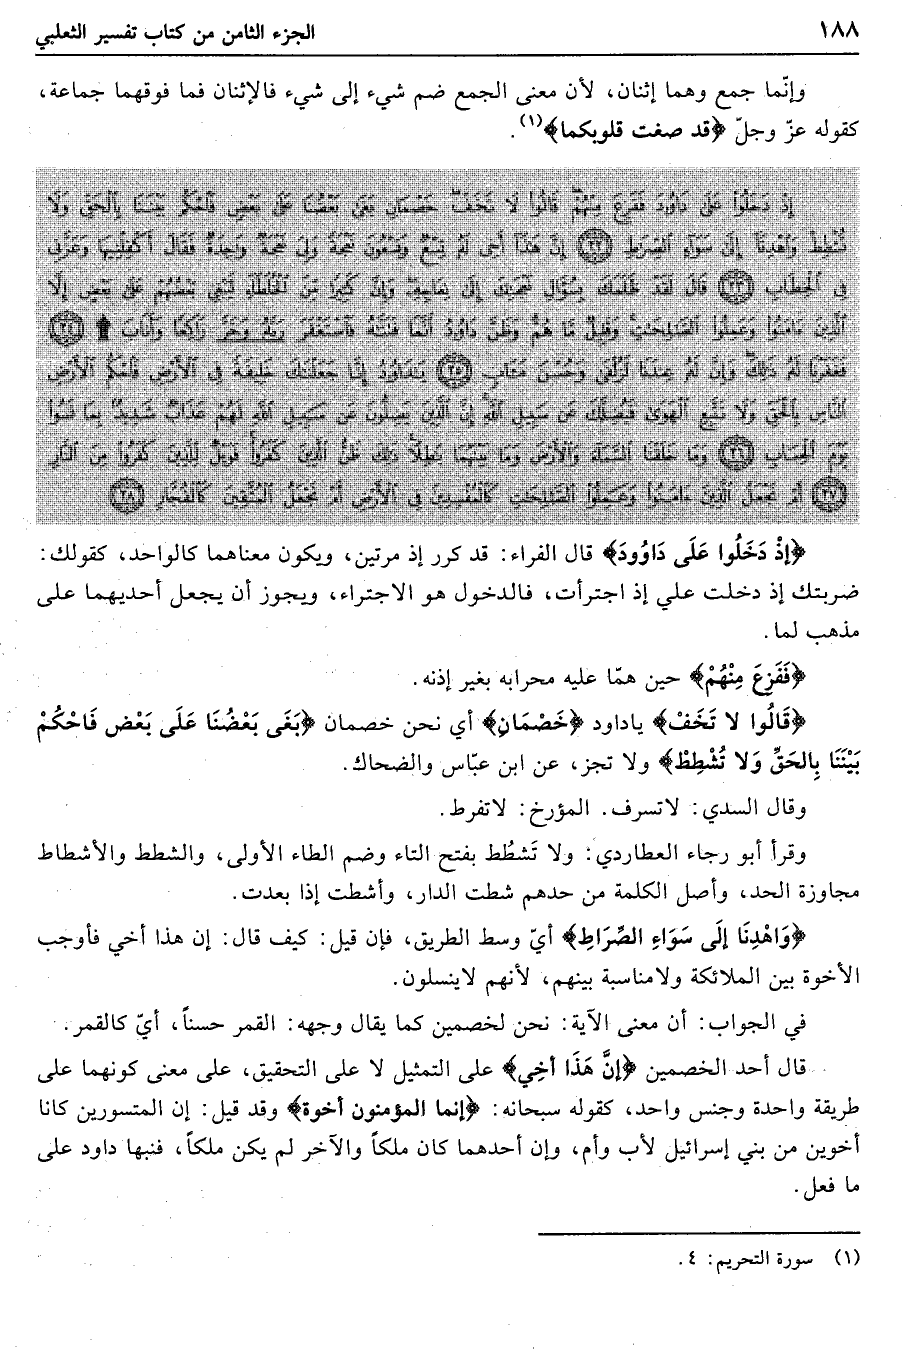 ١٨٨
الجزء الثامن من كتاب تفسير الثعلبي
وإنّما جمع وهما إثنان، لأن معنى الجمع ضم شيء إلى شيء فالإثنان فما فوقهما جماعة،
كقوله عزّ وجلّ ﴿قد صغت قلوبكما﴾(١).
إِذْ دَخَلُوا عَلَى دَاوُدَ فَفَزِعَ مِنْهُمْ قَالُوا لَا تَخَفْ خَصْمَانِ بَغَى بَعْضُنَا عَلَى بَعْضٍ فَاحْكُمْ بَيْنَنَا بِالْحَقِّ وَلَا
تُشْطِطْ وَاهْدِنَا إِلَى سَوَاءِ الصِّرَاطِ ﴿٢٢﴾ إِنَّ هَذَا أَخِي لَهُ تِسْعٌ وَتِسْعُونَ نَعْجَةً وَلِيَ نَعْجَةٌ وَاحِدَةٌ فَقَالَ أَكْفِلْنِيهَا وَعَزَّنِي
فِي الْخِطَابِ ﴿٢٣﴾ قَالَ لَقَدْ ظَلَمَكَ بِسُؤَالِ نَعْجَتِكَ إِلَى نِعَاجِهِ وَإِنَّ كَثِيرًا مِنَ الْخُلَطَاءِ لَيَبْغِي بَعْضُهُمْ عَلَى بَعْضٍ إِلَّا
الَّذِينَ آمَنُوا وَعَمِلُوا الصَّالِحَاتِ وَقَلِيلٌ مَا هُمْ وَظَنَّ دَاوُدُ أَنَّمَا فَتَنَّاهُ فَاسْتَغْفَرَ رَبَّهُ وَخَرَّ رَاكِعًا وَأَنَابَ ۩ ﴿٢٤﴾
فَغَفَرْنَا لَهُ ذَلِكَ وَإِنَّ لَهُ عِنْدَنَا لَزُلْفَى وَحُسْنَ مَآبٍ ﴿٢٥﴾ يَا دَاوُدُ إِنَّا جَعَلْنَاكَ خَلِيفَةً فِي الْأَرْضِ فَاحْكُمْ
النَّاسِ بِالْحَقِّ وَلَا تَتَّبِعِ الْهَوَى فَيُضِلَّكَ عَنْ سَبِيلِ اللَّهِ إِنَّ الَّذِينَ يَضِلُّونَ عَنْ سَبِيلِ اللَّهِ لَهُمْ عَذَابٌ شَدِيدٌ بِمَا نَسُوا
يَوْمَ الْحِسَابِ ﴿٢٦﴾ وَمَا خَلَقْنَا السَّمَاءَ وَالْأَرْضَ وَمَا بَيْنَهُمَا بَاطِلًا ذَلِكَ ظَنُّ الَّذِينَ كَفَرُوا فَوَيْلٌ لِلَّذِينَ كَفَرُوا مِنَ النَّارِ
﴿٢٧﴾ أَمْ نَجْعَلُ الَّذِينَ آمَنُوا وَعَمِلُوا الصَّالِحَاتِ كَالْمُفْسِدِينَ فِي الْأَرْضِ أَمْ نَجْعَلُ الْمُتَّقِينَ كَالْفُجَّارِ ﴿٢٨﴾
﴿إِذْ دَخَلُوا عَلَى دَاوُودَ﴾ قال الفراء: قد كرر إذ مرتين، ويكون معناهما كالواحد، كقولك:
ضربتك إذ دخلت علي إذ اجترأت، فالدخول هو الاجتراء، ويجوز أن يجعل أحديهما على
مذهب لما.
﴿فَفَزِعَ مِنْهُمْ﴾ حين همّا عليه محرابه بغير إذنه.
﴿قَالُوا لا تَخَفْ﴾ ياداود ﴿خَصْمَانِ﴾ أي نحن خصمان ﴿بَغَى بَعْضُنَا عَلَى بَعْض فَاحْكُمْ
بَيْنَنَا بِالحَقِّ وَلا تُشْطِطْ﴾ ولا تجز، عن ابن عبّاس والضحاك.
وقال السدي: لاتسرف. المؤرخ: لاتفرط.
وقرأ أبو رجاء العطاردي: ولا تَشطُط بفتح التاء وضم الطاء الأولى، والشطط والأشطاط
مجاوزة الحد، وأصل الكلمة من حدهم شطت الدار، وأشطت إذا بعدت.
﴿وَاهْدِنَا إِلَى سَوَاءِ الصِّرَاطِ﴾ أيّ وسط الطريق، فإن قيل: كيف قال: إن هذا أخي فأوجب
الأخوة بين الملائكة ولامناسبة بينهم، لأنهم لاينسلون.
في الجواب: أن معنى الآية: نحن لخصمين كما يقال وجهه: القمر حسناً، أيّ كالقمر.
قال أحد الخصمين ﴿إِنَّ هَذَا أَخِي﴾ على التمثيل لا على التحقيق، على معنى كونهما على
طريقة واحدة وجنس واحد، كقوله سبحانه: ﴿إنما المؤمنون أخوة﴾ وقد قيل: إن المتسورين كانا
أخوين من بني إسرائيل لأب وأم، وإن أحدهما كان ملكاً والآخر لم يكن ملكاً، فنبها داود على
ما فعل.
(١) سورة التحريم: ٤.